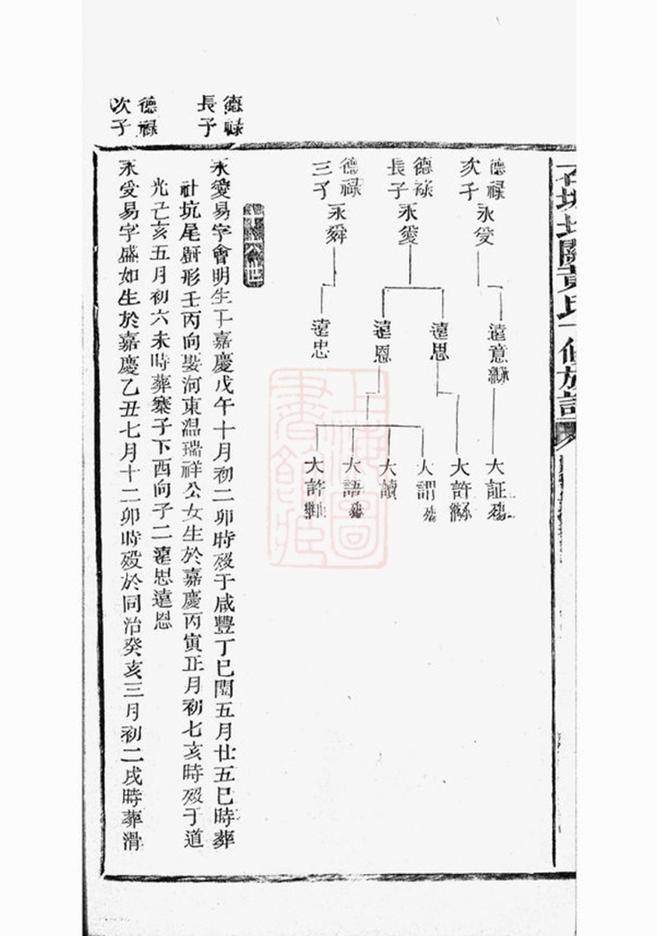 關黃氏
修族譜
德祿
次子
永受
德祿
長子
永愛
德祿
三子
永舜
遠意繼
遠思
遠恩
遠忠
大証殤
大許繼
大謂殤
大讀
大語殤
大許
德祿
長子
永愛易字會明生于嘉慶戊午十月初二卯時殁于咸豐丁巳閏五月廿五巳時葬
社坑尾厨形壬丙向娶河東温瑞祥公女生於嘉慶丙寅正月初七亥時殁于道
光己亥五月初六未時葬寨子下酉向子二遠思遠恩
德祿
次子
永受易字盛如生於嘉慶乙丑七月十二卯時殁於同治癸亥三月初二戌時葬滑